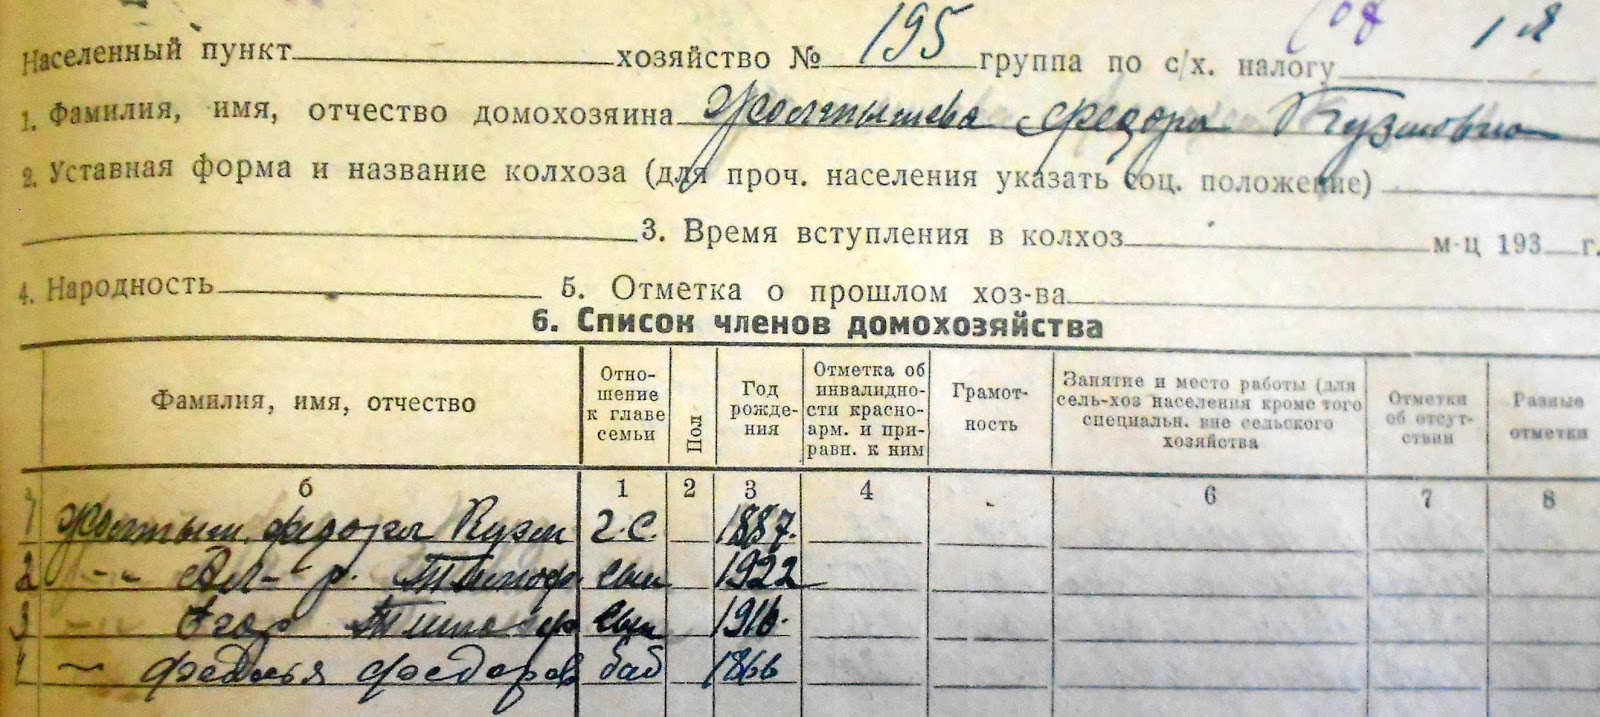 Населенный пункт хозяйство № 195 группа по с/х. налогу
1. Фамилия, имя, отчество домохозяина Федора Кузмовна
2. Уставная форма и название колхоза (для проч. населения указать соц. положение)
3. Время вступления в колхоз м-ц 193 г.
4. Народность 5. Отметка о прошлом хоз-ва
6. Список членов домохозяйства
Фамилия, имя, отчество
Отно-
шение
к главе
семьи
Пол
Год
рожде-
ния
Отметка об
инвалидно-
сти красно-
арм. и при-
равн. к ним
Грамот-
ность
Занятие и место работы (для
сель-хоз населения кроме того
специальн. вне сельского
хозяйства
Отметки
об отсут-
ствии
Разные
отметки
б 1 2 3 4 6 7 8
1 Федора Кузм г.с. 1887.
2 -"- Тимоф сын 1922
3 -"- Егор Тимоф сын 1916.
федоров баб 1866